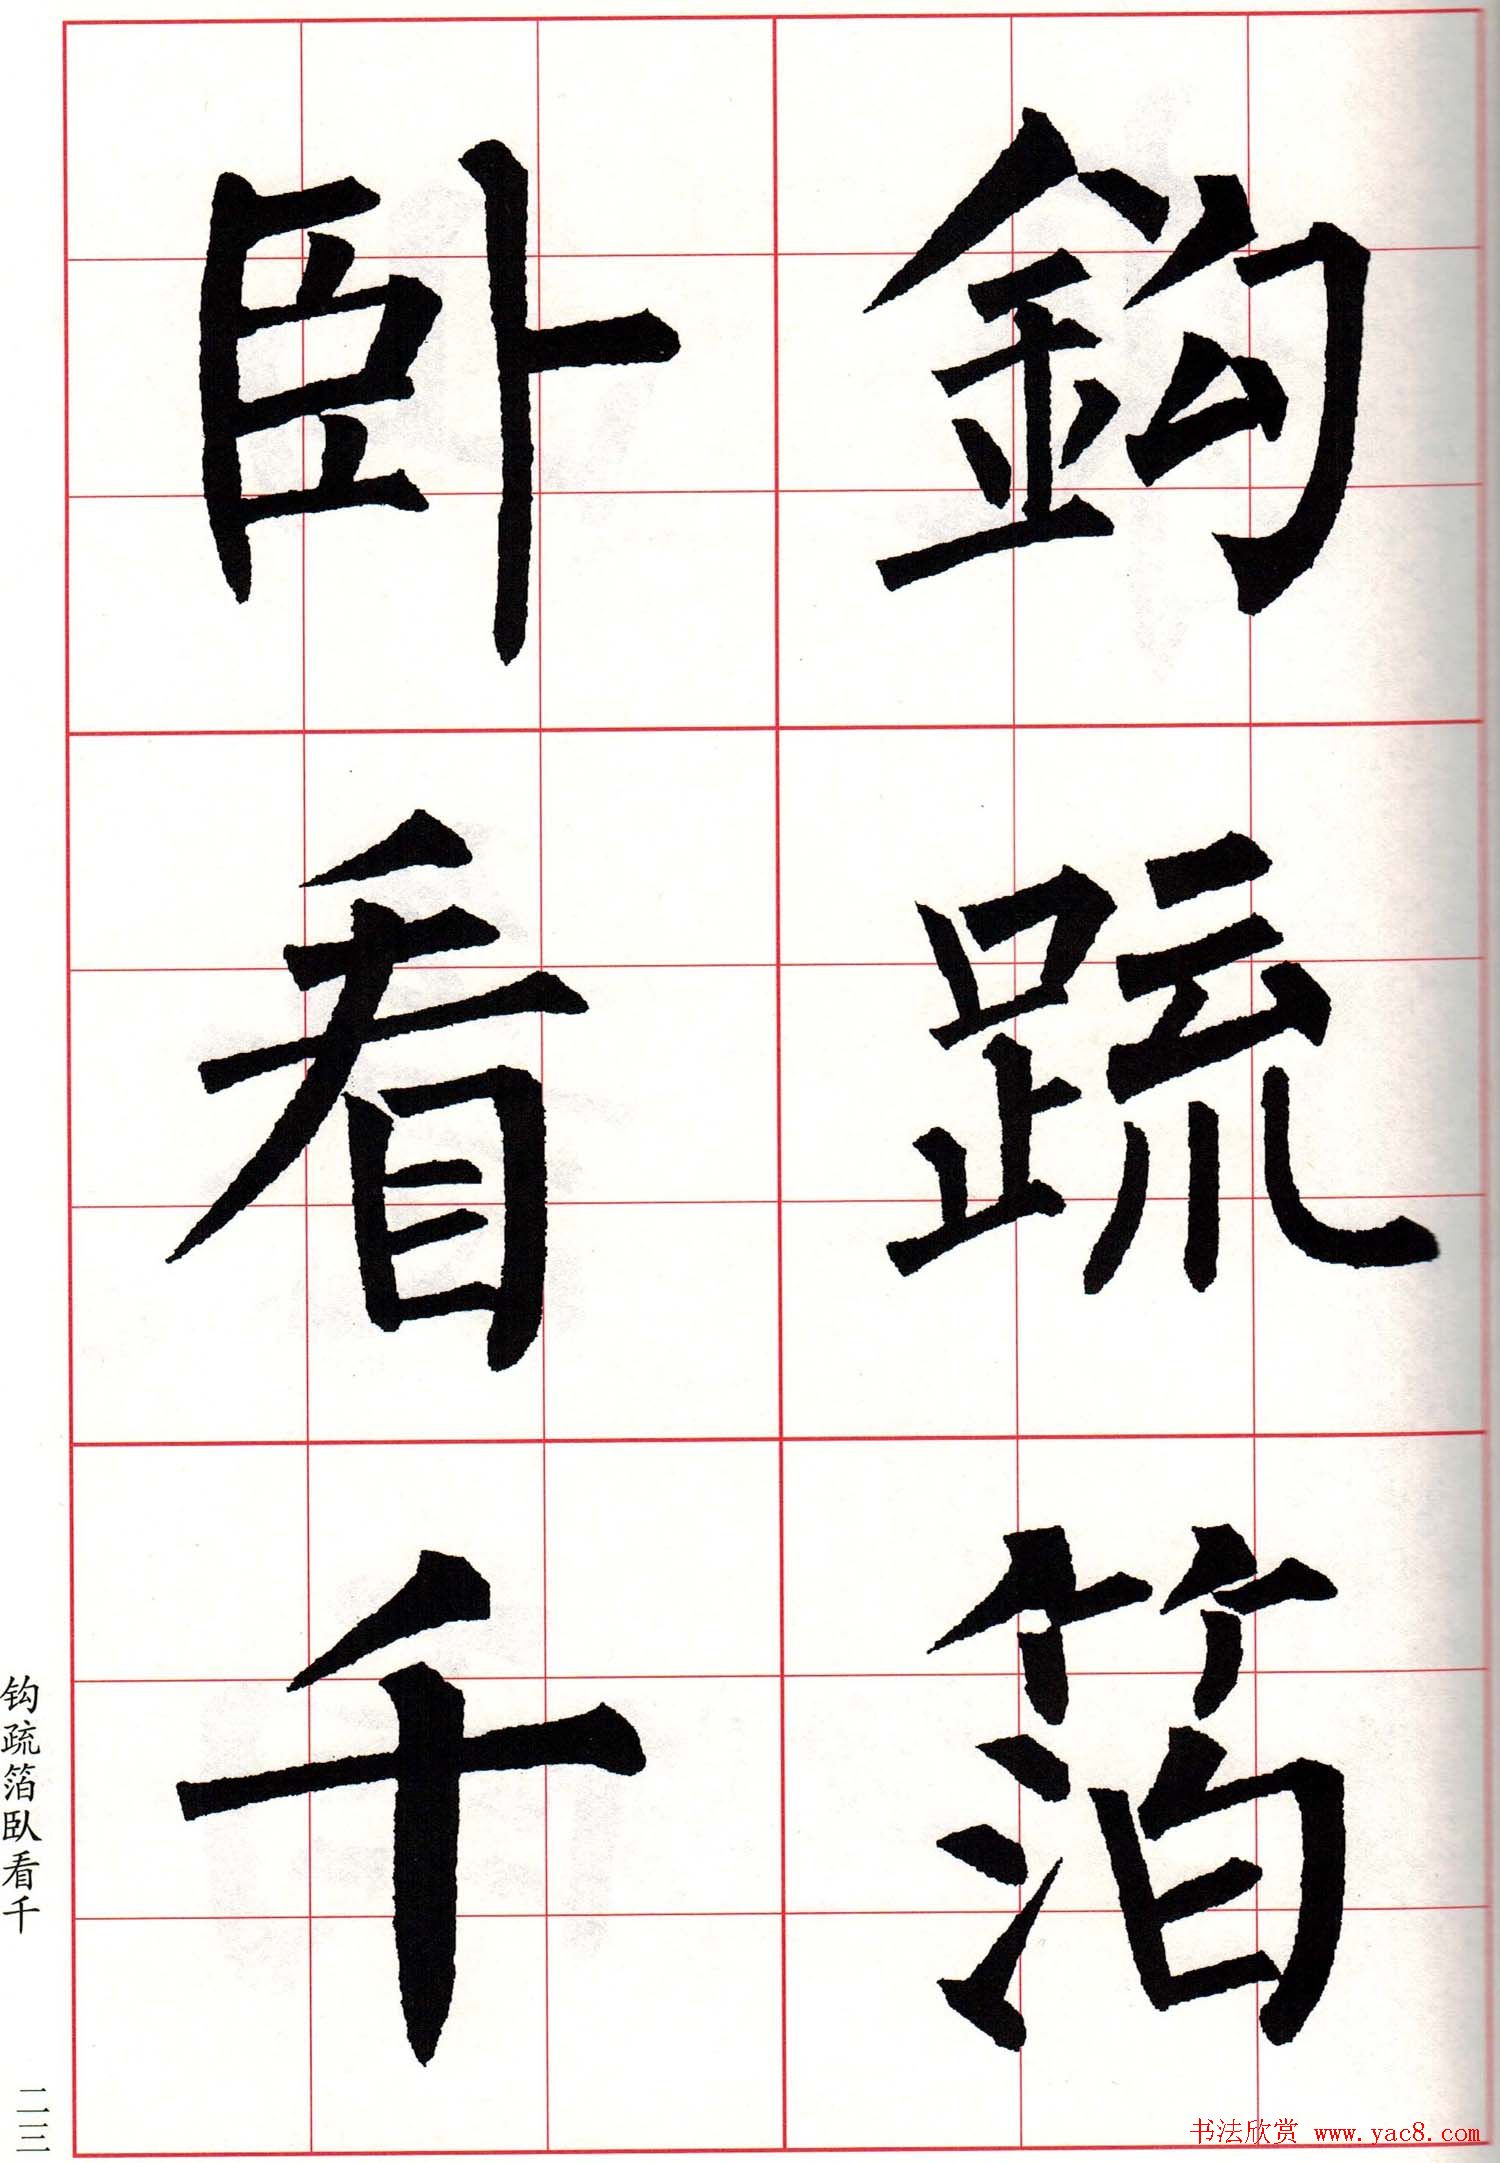 鈎疏箔
卧看千
钩疏箔卧看千
二三
书法欣赏 www.yac8.com